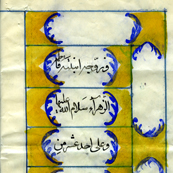 وبزوجه ابنته فاطمة
الزهراء سلام الله عليها
وعلى احد عشر من